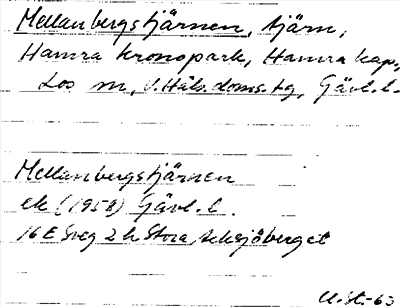 Mellanbergstjärnen, tjärn,
Hamra kronopark, Hamra kap.,
Los sn, V.Häls. doms. tg, Gävl.l.
Mellanbergstjärnen
ek (1958) Gävl.l.
16 E Sveg 2 h Stora Acksjöberget
U.st.-63